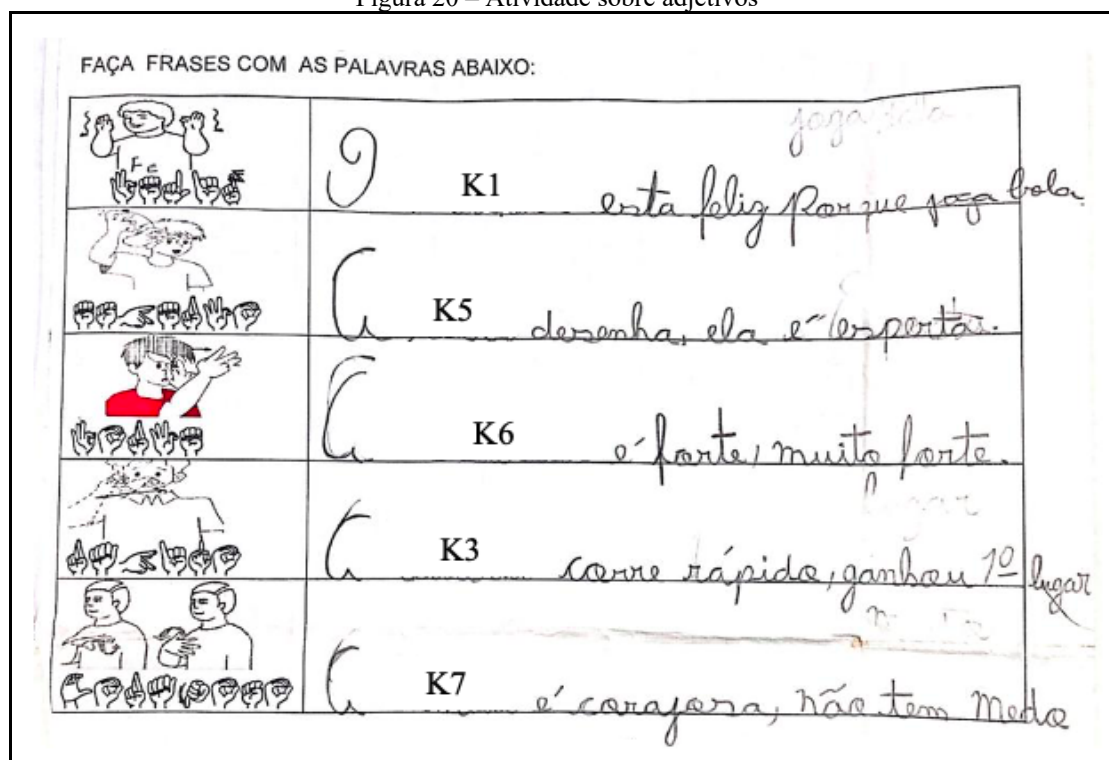 Figura 20 – Atividade sobre adjetivos
FAÇA FRASES COM AS PALAVRAS ABAIXO:
joga bola
Fe
O K1 esta feliz porque joga bola
A K5 desenha, ela é esperta.
A K6 é forte, muito forte.
lugar
A K3 corre rápido, ganhou 1º lugar
A K7 é corajosa, não tem medo